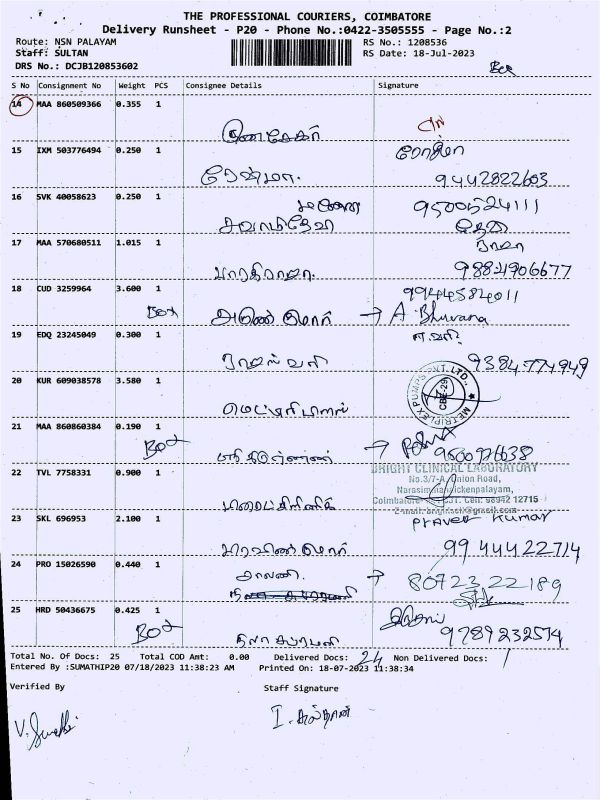 THE PROFESSIONAL COURIERS, COIMBATORE
Delivery Runsheet - P20 - Phone No.:0422-3505555 - Page No.:2
Route: NSN PALAYAM
RS No.: 1208536
Staff: SULTAN
RS Date: 18-Jul-2023
DRS No.: DCJB120853602
S No Consignment No Weight PCS Consignee Details Signature
14 MAA 860509366 0.355 1
குணசேகர்
15 IXM 503776494 0.250 1
ரேஷ்மா.
9442822603
16 SVK 40058623 0.250 1
9500524111
17 MAA 570680511 1.015 1
பாரதிராஜா.
9884906677
18 CUD 3259964 3.600 1
9944584011
Box
அருண் குமார் → A. Bhuvana
19 EDQ 23245049 0.300 1
9384774949
20 KUR 609038578 3.580 1
METRIPLEX PUMPS PVT. LTD.,
CBE-29
21 MAA 860860384 0.190 1
Box
→ 9500976638
22 TVL 7758331 0.900 1
BRIGHT CLINICAL LABORATORY
No.3/7-A, Union Road,
Narasimmanaickenpalayam,
Coimbatore Cell: 98942 12715
23 SKL 696953 2.100 1
Praveen Kumar
பிரவின் குமார்
99 444 22714
24 PRO 15026590 0.440 1
→ 80723 22189
25 HRD 50436675 0.425 1
Box
9789232514
Total No. Of Docs: 25 Total COD Amt: 0.00 Delivered Docs: 24 Non Delivered Docs: 1
Entered By :SUMATHIP20 07/18/2023 11:38:23 AM Printed On: 18-07-2023 11:38:34
Verified By Staff Signature
I. சுல்தான்